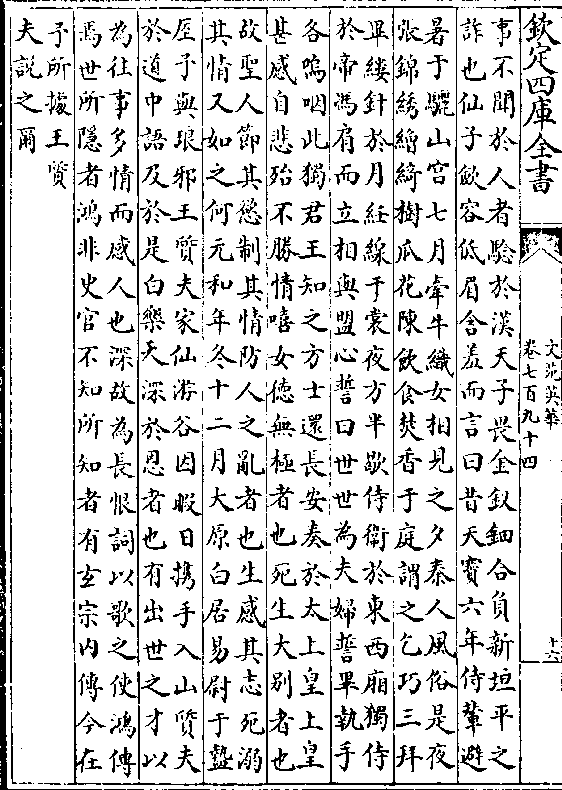 欽定四庫全書
文苑英華
卷七百九十四
十六
事不聞於人者驗於漢天子畏金釵鈿合負新垣平之
詐也仙子歛容低眉含羞而言曰昔天寶六年侍輦避
暑于驪山宮七月牽牛織女相見之夕秦人風俗是夜
張錦綉繒綺樹瓜花陳飲食焚香于庭謂之乞巧三拜
畢縷針於月絍線于裳夜方半歇侍衛於東西廂獨侍
於帝憑肩而立相與盟心誓曰世世為夫婦誓畢執手
各嗚咽此獨君王知之方士還長安奏於太上皇上皇
甚感自悲殆不勝情嘻女徳無極者也死生大别者也
故聖人節其慾制其情防人之亂者也生感其志死溺
其情又如之何元和年冬十二月大原白居易尉于盩
厔予與琅邪王質夫家仙游谷因暇日携手入山質夫
於道中語及於是白樂天深於恩者也有出世之才以
為往事多情而感人也深故為長恨詞以歌之使鴻傳
焉世所隱者鴻非史官不知所知者有玄宗内傳今在
予所據王質
夫説之爾